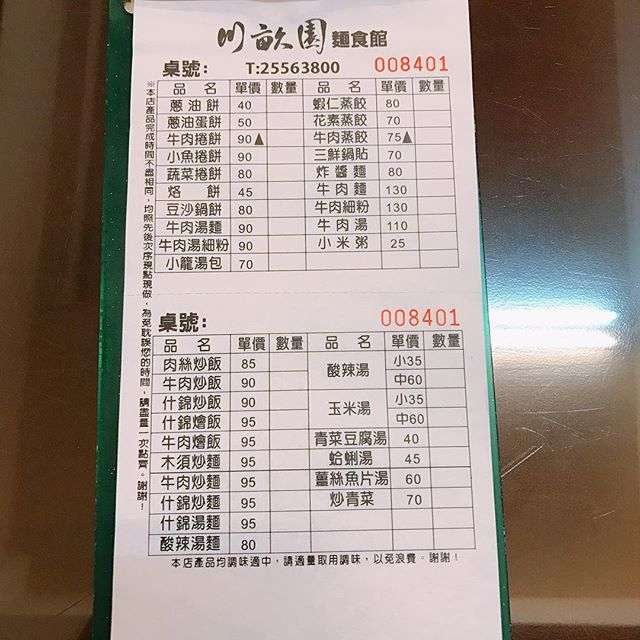 川畝園 麵食館
桌號: T:25563800 008401
品名 單價 數量 品名 單價 數量
蔥油餅 40 蝦仁蒸餃 80
蔥油蛋餅 50 花素蒸餃 70
牛肉捲餅 90▲ 牛肉蒸餃 75▲
小魚捲餅 90 三鮮鍋貼 70
蔬菜捲餅 80 炸醬麵 80
烙餅 45 牛肉麵 130
豆沙鍋餅 80 牛肉細粉 130
牛肉湯麵 90 牛肉湯 110
牛肉湯細粉 90 小米粥 25
小籠湯包 70
※本店產品完成時間不盡相同,均照先後次序現點現做,為免耽誤您的時間,請盡量一次點齊。謝謝!
桌號: 008401
品名 單價 數量 品名 單價 數量
肉絲炒飯 85 酸辣湯 小35
牛肉炒飯 90 中60
什錦炒飯 90 玉米湯 小35
什錦燴飯 95 中60
牛肉燴飯 95 青菜豆腐湯 40
木須炒麵 95 蛤蜊湯 45
牛肉炒麵 95 薑絲魚片湯 60
什錦炒麵 95 炒青菜 70
什錦湯麵 95
酸辣湯麵 80
本店產品均調味適中,請適量取用調味,以免浪費。謝謝!